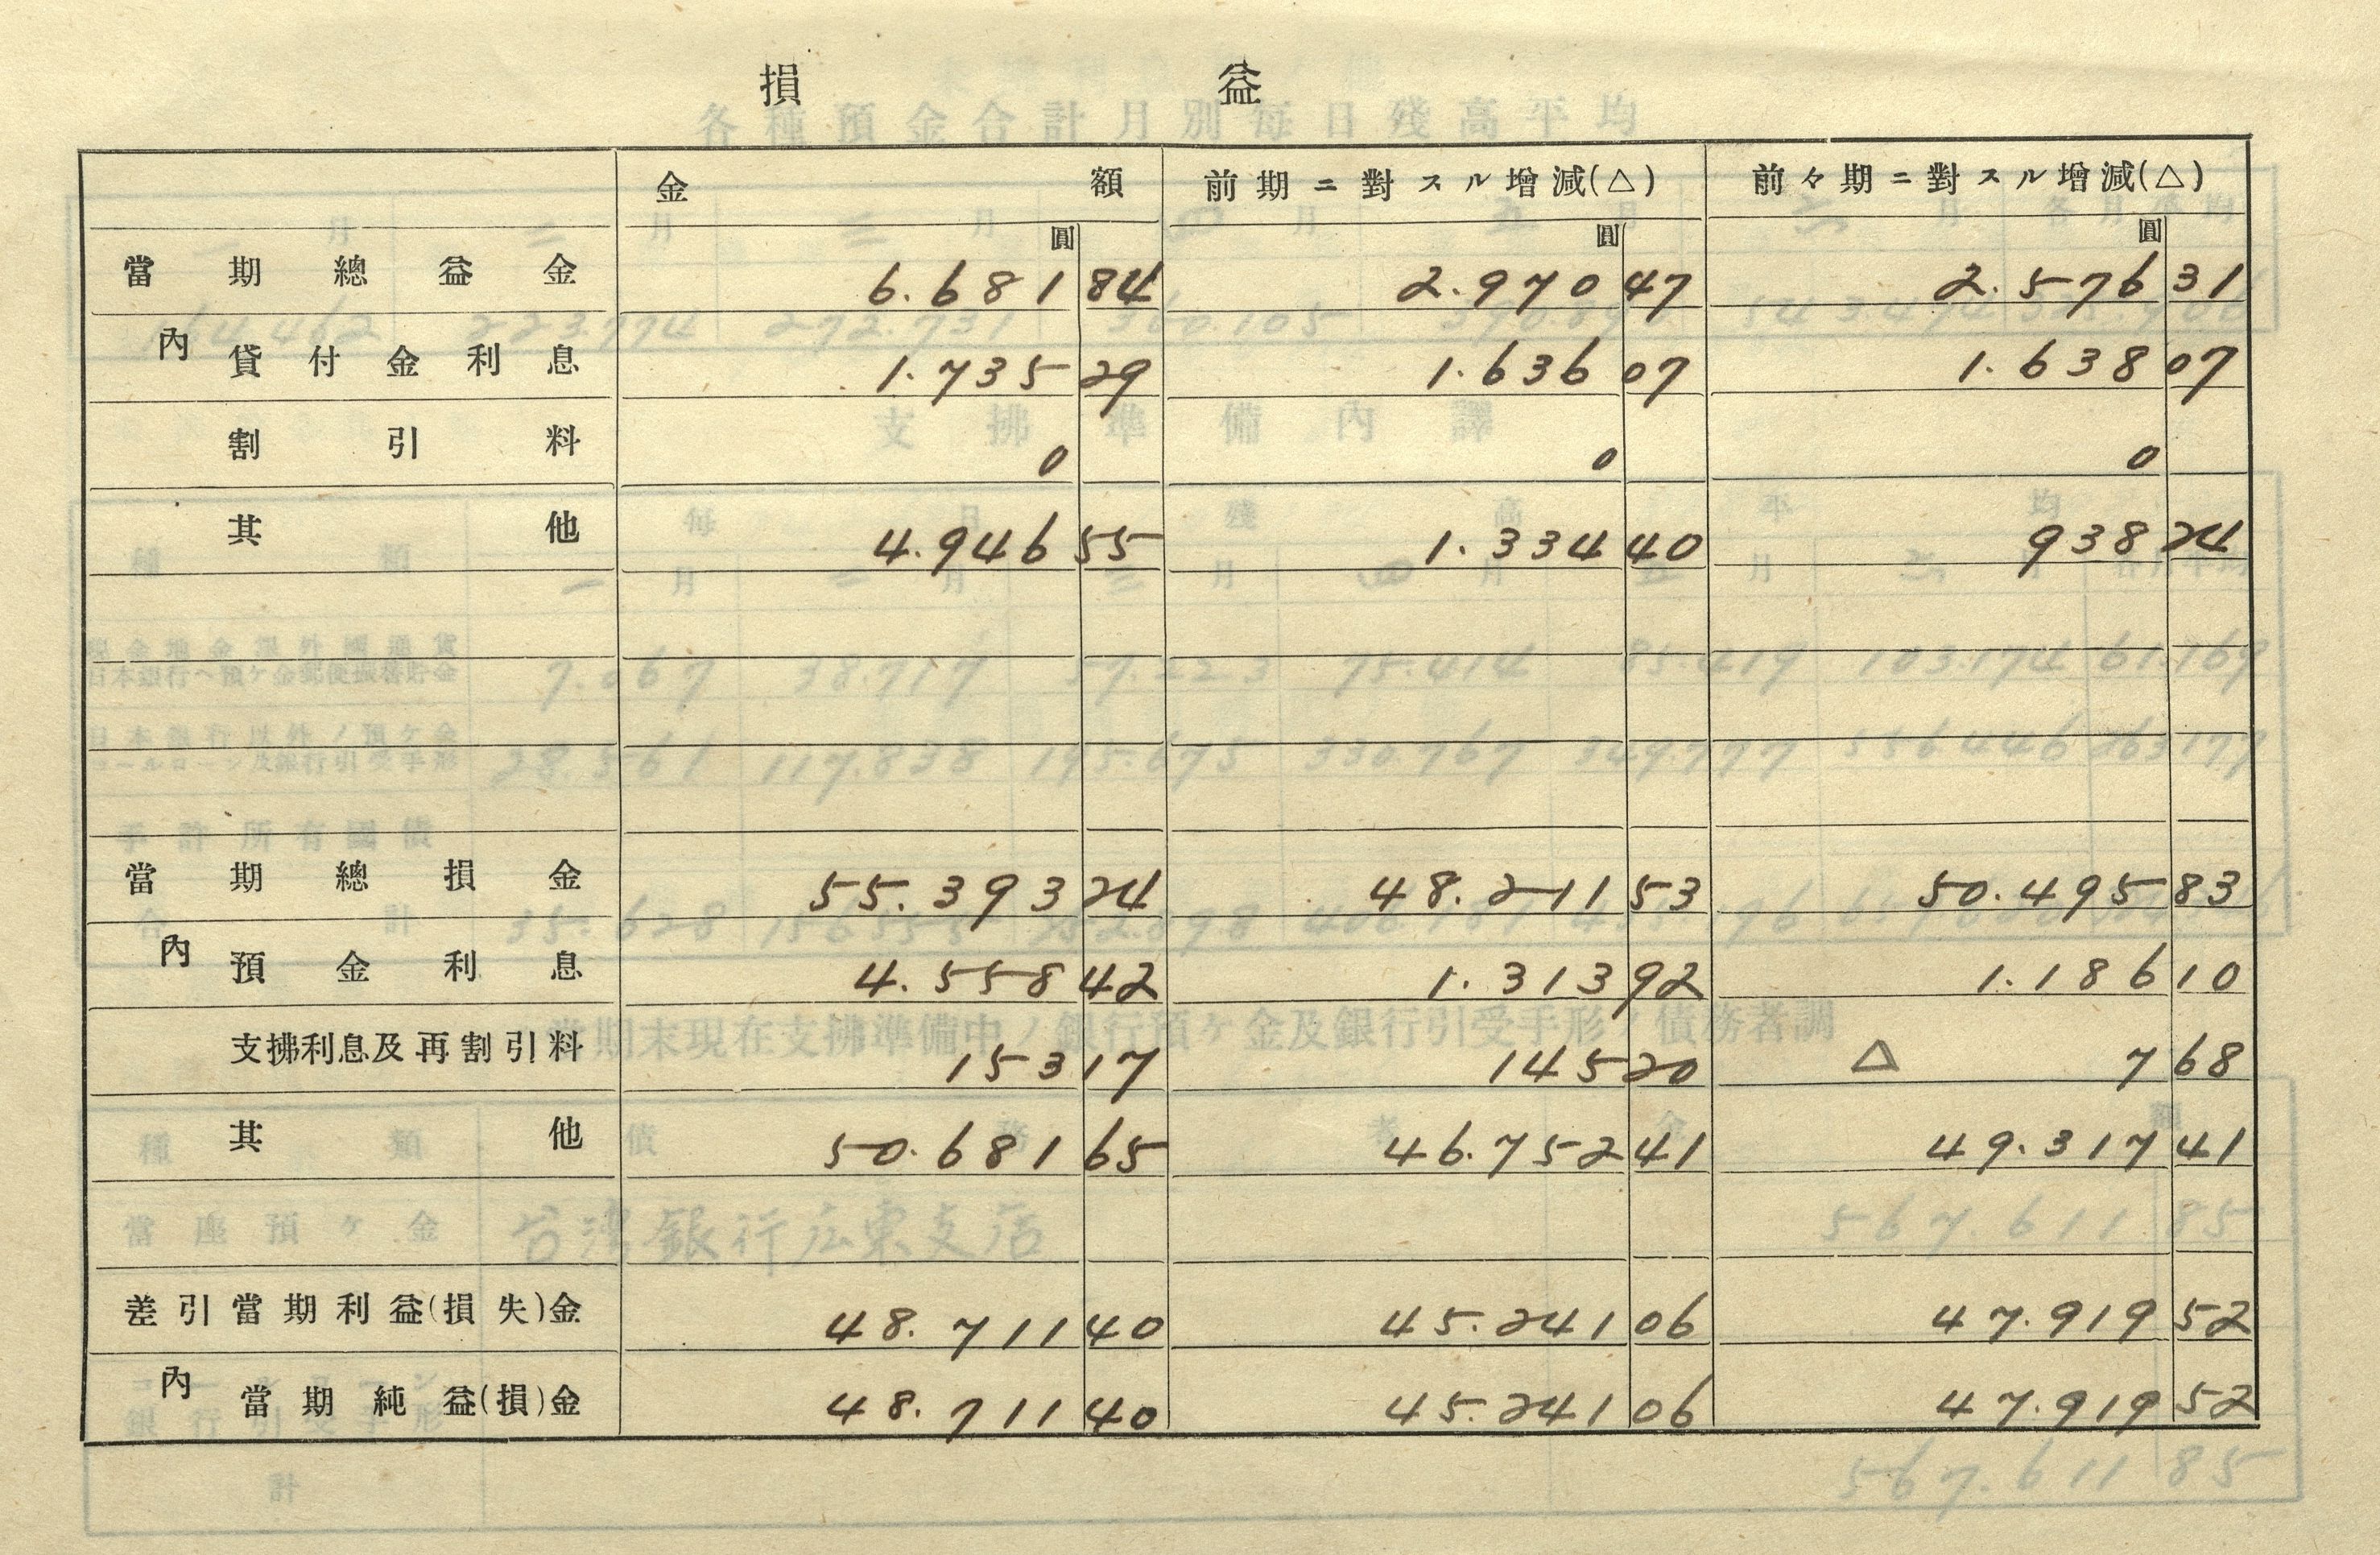 損益
金額 前期ニ對スル增減(△) 前々期ニ對スル增減(△)
圓 圓 圓
當期總益金 6.681 84 2.970 47 2.576 31
內 貸付金利息 1.735 29 1.636 07 1.638 07
割引料 0 0 0
其他 4.946 55 1.334 40 938 24
當期總損金 55.393 24 48.211 53 50.495 83
內 預金利息 4.558 42 1.313 92 1.186 10
支拂利息及再割引料 153 17 145 20 △ 7 68
其他 50.681 65 46.752 41 49.317 41
差引當期利益(損失)金 48.711 40 45.241 06 47.919 52
內 當期純益(損)金 48.711 40 45.241 06 47.919 52